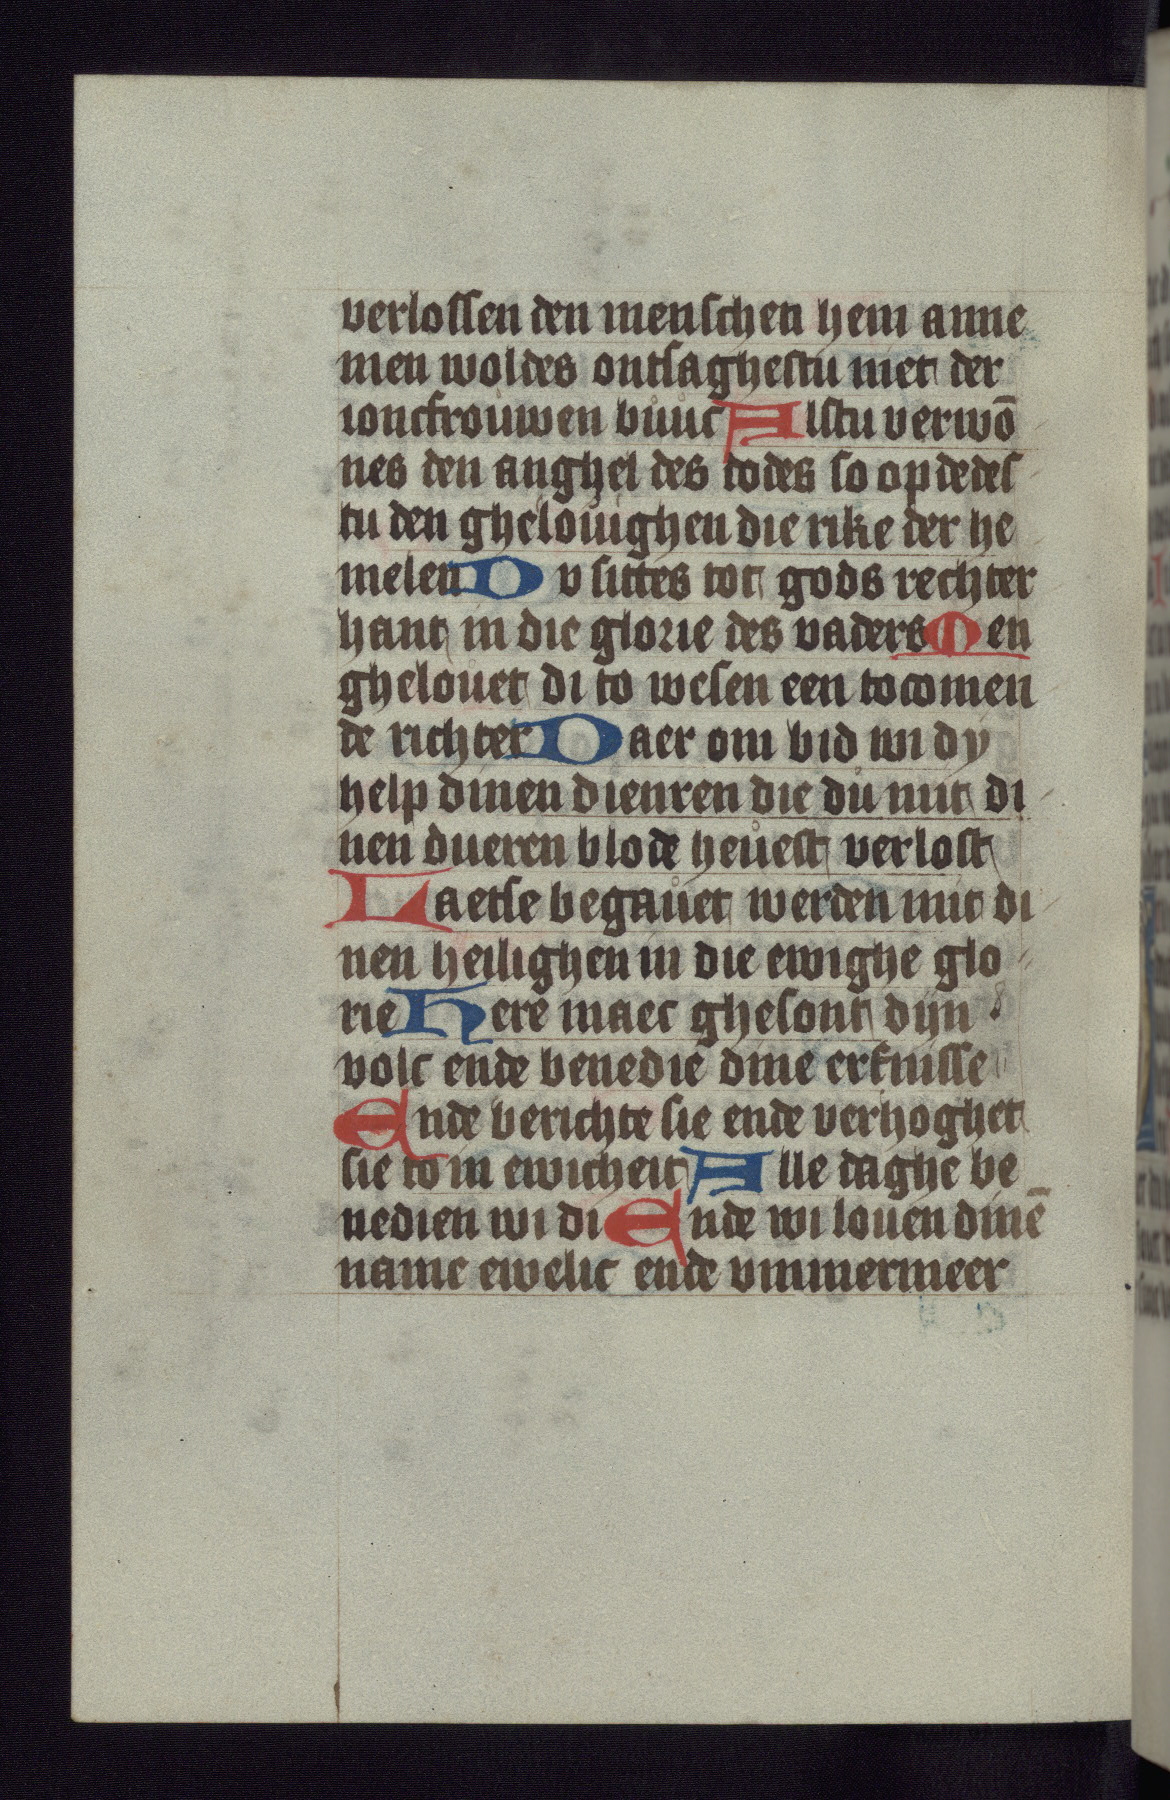 verlossen den menschen hem anne
men woldes ontsaghestu niet der
ioncfrouwen buuc Alstu verwō
nes den anghel des dodes so op dedes
tu den ghelouighen die rike der he
melen Du sittes tot gods rechter
hant in die glorie des vaders Men
ghelouet di to wesen een tocomen
de richter Daer om bid wi dy
help dinen dienren die du mit di
nen dueren blode heuest verlost
Laetse begauet werden mit di
nen heilighen in die ewighe glo
rie Here maec ghesont dijn
volc ende benedie dine erfnisse
Ende berichte sie ende verhoghet
sie to in ewicheit Alle daghe be
nedien wi di Ende wi louen dinē
name ewelic ende vmmermeer